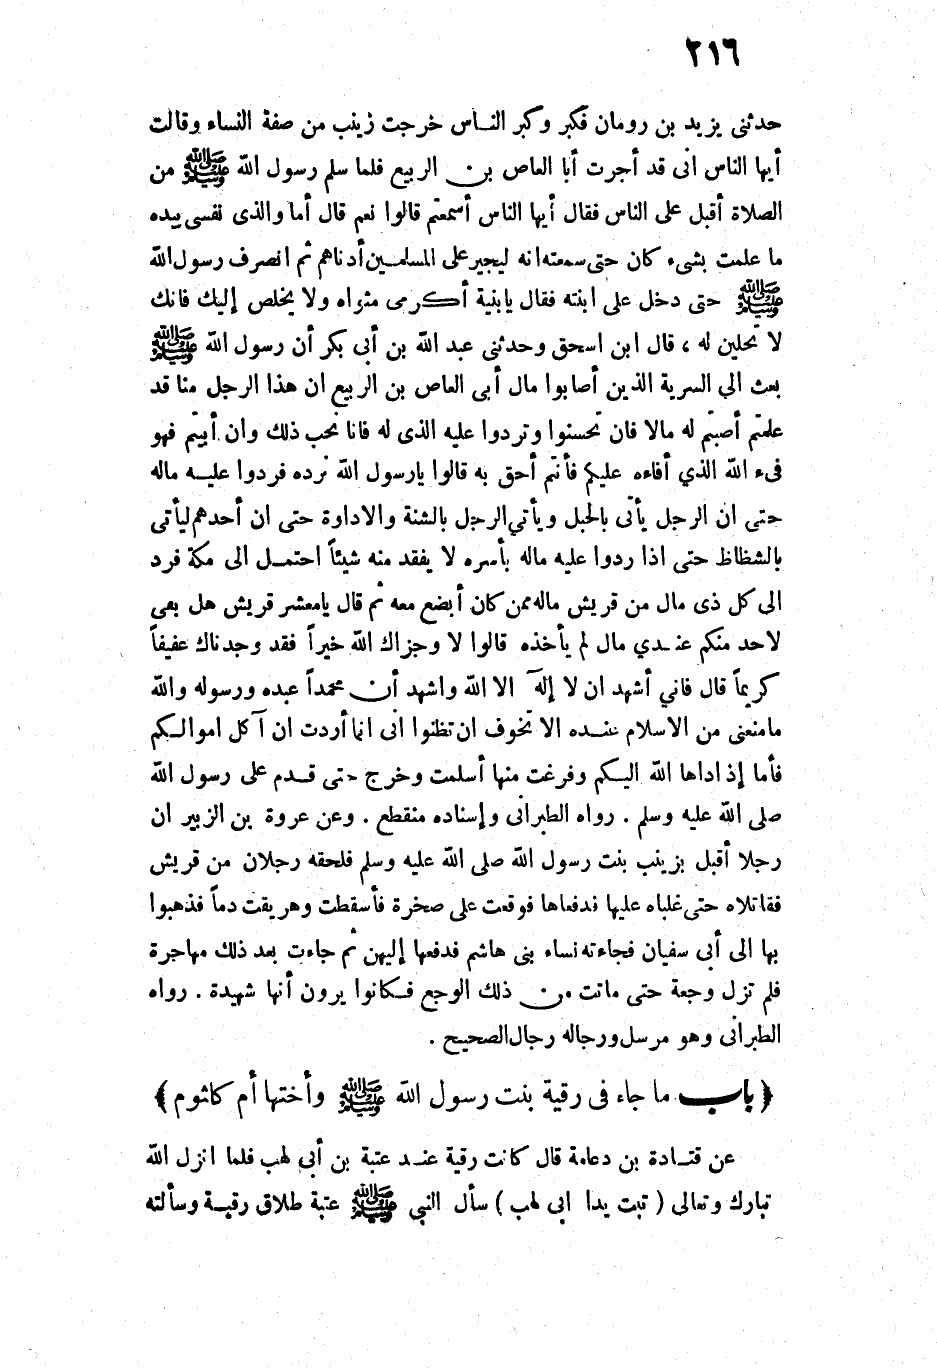 ٢١٦
حدثنى يزيد بن رومان فكبر وكبر الناس خرجت زينب من صفة النساء وقالت
أيها الناس انى قد أجرت أبا العاص بن الربيع فلما سلم رسول الله ﷺ من
الصلاة أقبل على الناس فقال أيها الناس أسمعتم قالوا نعم قال أما والذى نفسى بيده
ما علمت بشىء كان حتى سمعته انه ليجير على المسلمين أدناهم ثم انصرف رسول الله
ﷺ حتى دخل على ابنته فقال يابنية أكرمى مثواه ولا يخلص إليك فانك
لا تحلين له ، قال ابن اسحق وحدثنى عبد الله بن أبى بكر أن رسول الله ﷺ
بعث الي السرية الذين أصابوا مال أبى العاص بن الربيع ان هذا الرجل منا قد
علمتم أصبتم له مالا فان تحسنوا وتردوا عليه الذى له فانا نحب ذلك وان أبيتم فهو
فىء الله الذي أفاءه عليكم فأنتم أحق به قالوا يارسول الله نرده فردوا عليه ماله
حتى ان الرجل يأتى بالحبل ويأتي الرجل بالشنة والاداوة حتى ان أحدهم ليأتى
بالشظاظ حتى اذا ردوا عليه ماله بأسره لا يفقد منه شيئاً احتمل الى مكة فرد
الى كل ذى مال من قريش ماله ممن كان أبضع معه ثم قال يامعشر قريش هل بقى
لاحد منكم عندي مال لم يأخذه قالوا لا وجزاك الله خيراً فقد وجدناك عفيفاً
كريماً قال فاني أشهد ان لا إله الا الله واشهد أن محمداً عبده ورسوله والله
مامنعنى من الاسلام عنده الا تخوف ان تظنوا انى انما أردت ان آكل اموالكم
فأما إذ اداها الله اليكم وفرغت منها أسلمت وخرج حتى قدم على رسول الله
صلى الله عليه وسلم . رواه الطبرانى وإسناده منقطع . وعن عروة بن الزبير ان
رجلا أقبل بزينب بنت رسول الله صلى الله عليه وسلم فلحقه رجلان من قريش
فقاتلاه حتى غلباه عليها فدفعاها فوقعت على صخرة فأسقطت وهريقت دماً فذهبوا
بها الى أبى سفيان فجاءته نساء بنى هاشم فدفعها إليهن ثم جاءت بعد ذلك مهاجرة
فلم تزل وجعة حتى ماتت من ذلك الوجع فكانوا يرون أنها شهيدة . رواه
الطبرانى وهو مرسل ورجاله رجال الصحيح .
﴿ باب ما جاء فى رقية بنت رسول الله ﷺ وأختها أم كلثوم ﴾
عن قتادة بن دعامة قال كانت رقية عند عتبة بن أبي لهب فلما انزل الله
تبارك وتعالى ( تبت يدا ابى لهب ) سأل النبي ﷺ عتبة طلاق رقية وسألته